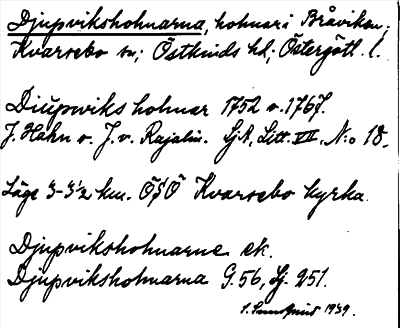 Djupviksholmarna, holmar i Bråviken,
Kvarsebo sn; Östkinds hd; Östergötl. l.
Diupwiks holmar 1752 o. 1767.
J. Hahn o. J. v. Rajalin. SjA, Litt. VII, N:o 18.
Läge 3-3½ km. ÖSÖ Kvarsebo kyrka.
Djupviksholmarne ek.
Djupviksholmarna G. 56, Sj. 251.
S. Sundquist 1939.